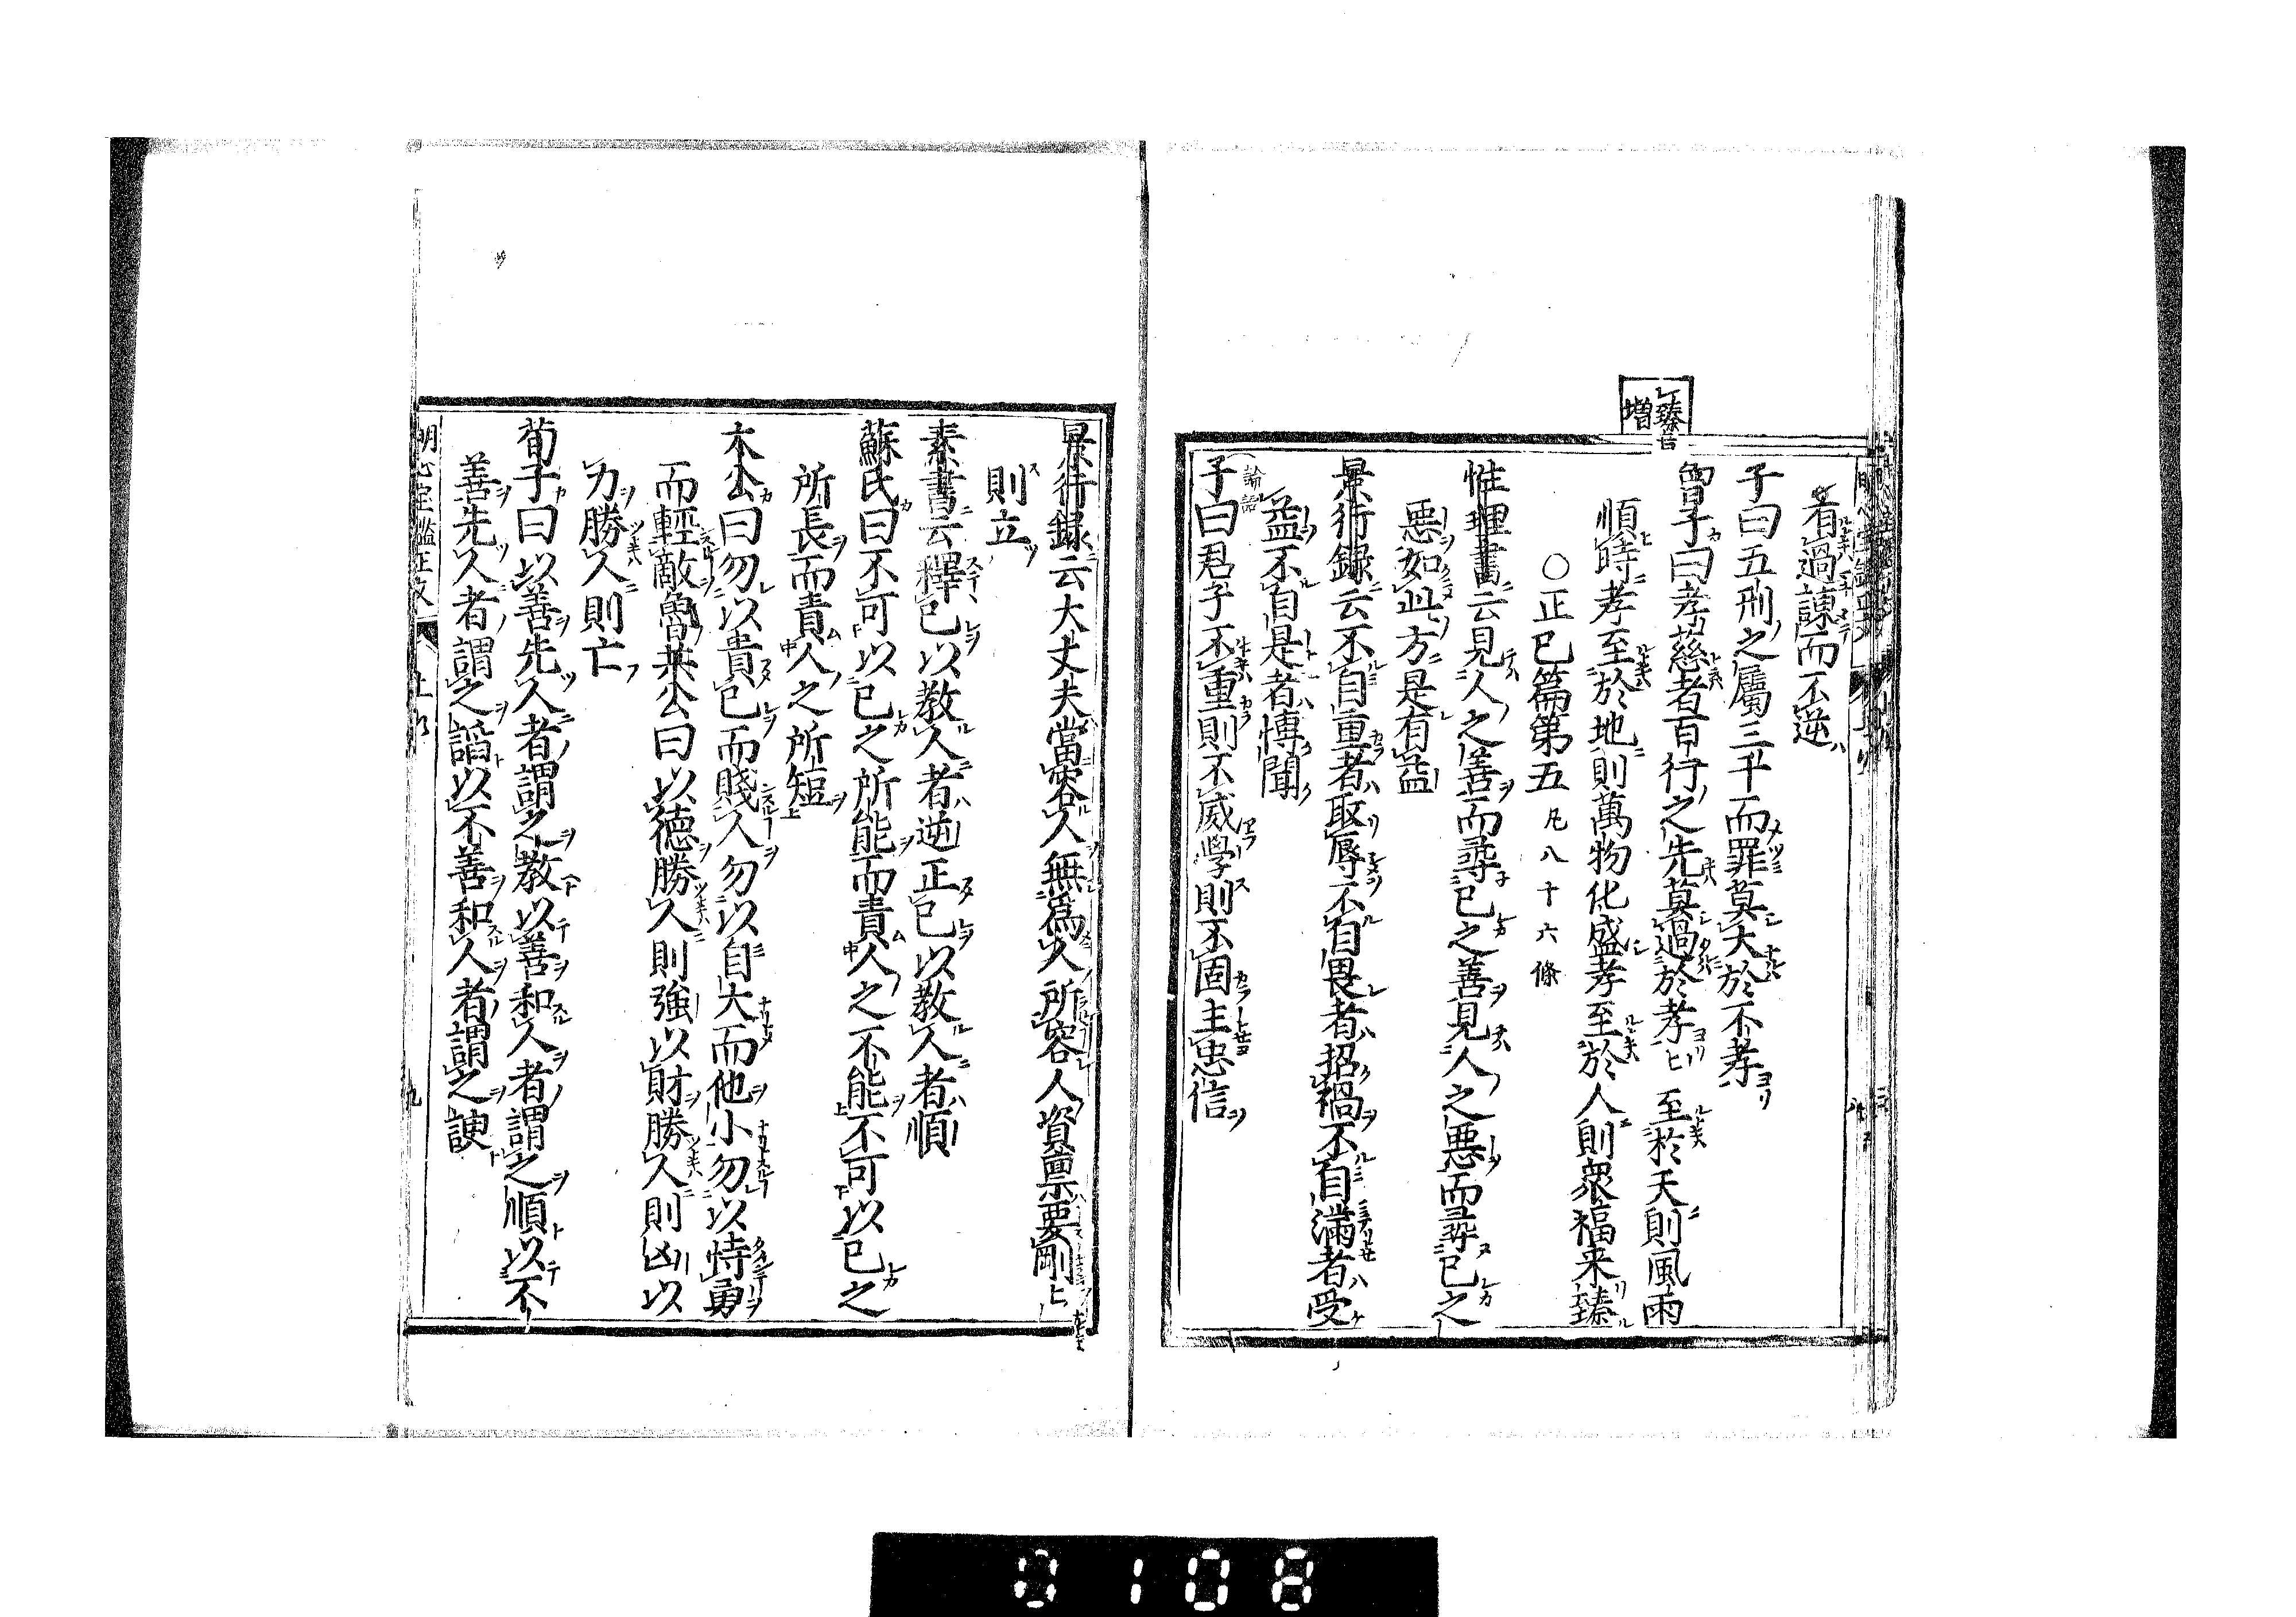 有過諫而不逆
子曰五刑之屬三千而罪莫大於不孝
曾子曰孝慈者百行之先莫過於孝至於天則風雨
順時孝至於地則萬物化盛孝至於人則衆福来臻
○正己篇第五凡八十六條
性理書云見人之善而尋己之善見人之悪而尋己之
悪如此方是有益
景行録云不自重者取辱不自畏者招禍不自滿者受
益不自是者博聞
論語
子曰君子不重則不威學則不固主忠信
景行録云大丈夫當容人無為人所容人資稟要剛
則立
素書云釋己以教人者逆正己以教人者順
蘇氏曰不可以己之所能而責人之不能不可以己之
所長而責人之所短
太公曰勿以貴己而賤人勿以自大而他小勿以恃勇
而輕敵魯共公曰以德勝人則強以財勝人則凶以
力勝人則亡
荀子曰以善先人者謂之教以善和人者謂之順以不
善先人者謂之謟以不善和人者謂之諛
九
0108